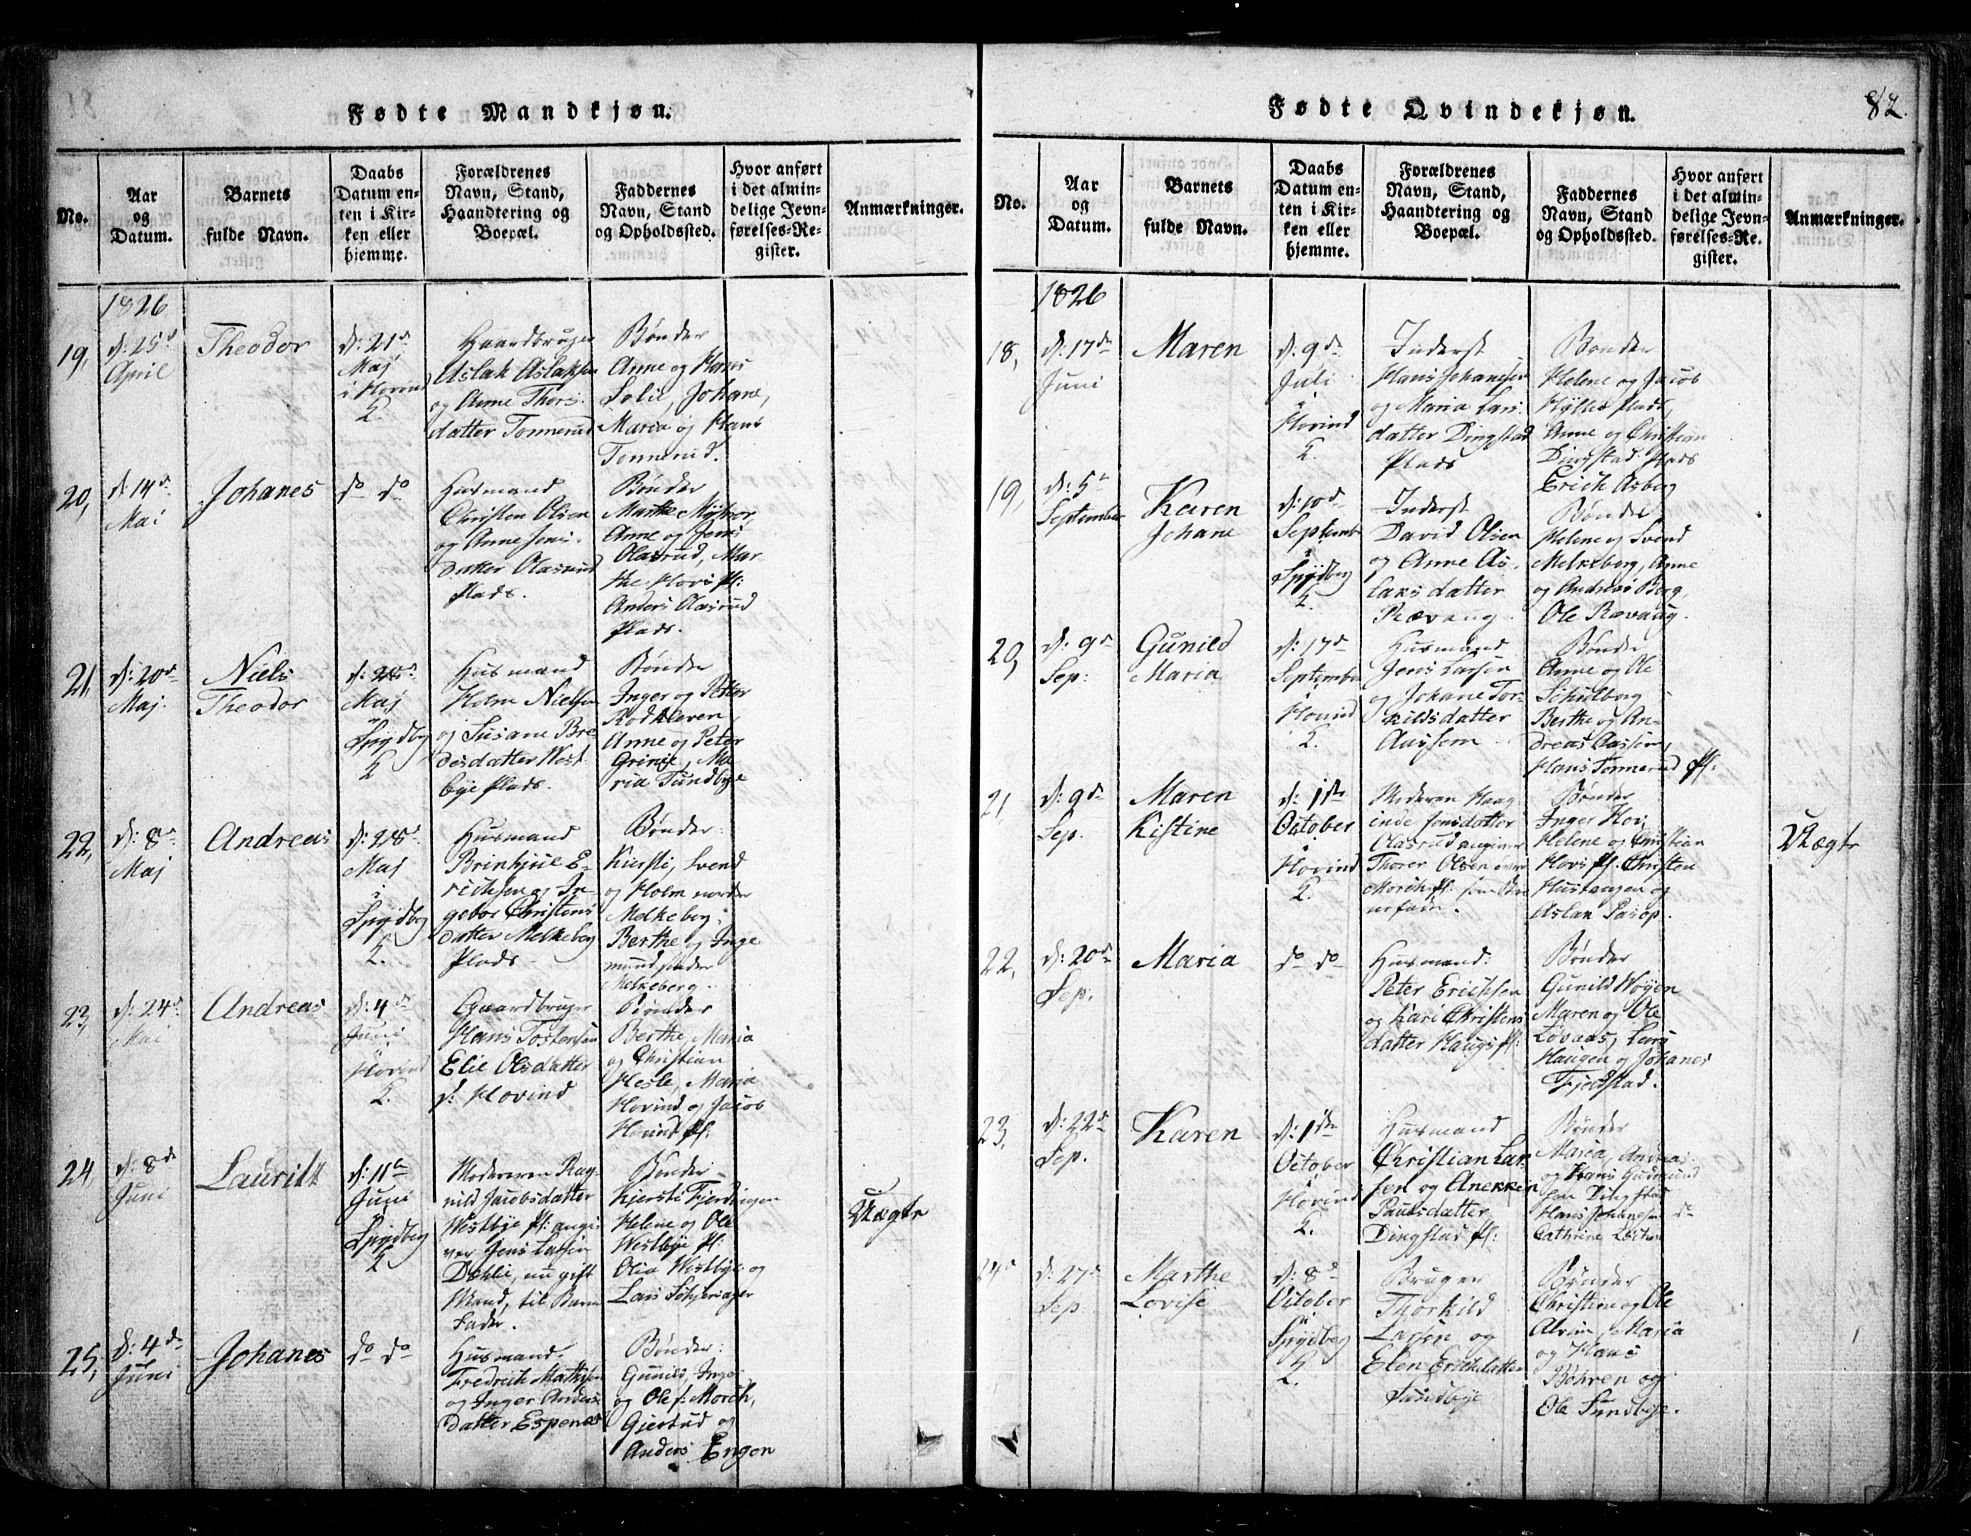 Fødte Mandkjøn.
No.
Aar
og
Datum.
Barnets
fulde Navn.
Daabs
Datum en-
ten i Kir-
ken eller
hjemme.
Forældrenes
Navn, Stand,
Haandtering og
Boepæl.
Faddernes
Navn, Stand
og Opholdssted.
Hvor anført
i det almin-
delige Jevn-
førelses-Re-
gister.
Anmærkninger.
1826
19,
d: 25d
April
Theodor
d: 21d
Maj
i Hovind
K
Gaardbruger
Aslak Aslaksen
og Anne Thors-
datter Tonnerud
Bønder
Anne og Hans
Solie, Johane,
Maria og Hans
Tonnerud.
20,
d 14d
Mai
Johanes
do do
Husmand
Christen Olsen
og Anne Jens-
datter Olasrud
Plads.
Bønder
Marthe
Anne og Jens
Olasrud, Mar-
the Hovs pl:
Anders Olasrud
Plads.
21,
d: 20d
Maj.
Niels
Theodor
d: 28d
Maj
i
Spydbg
K
Husmand
Holm Nielsen
og Susane Bre
desdatter West
bye Plads.
Bønder
Inger og Petter
Rodkleven,
Anne og Peter
Grinie, Ma
ria Sundbye
22,
d: 8d
Maj
Andreas
d: 28d
Maj
i
Spydbeg
K.
Husmand
Brinhjul E-
richsen og In-
gebor Christens
datter Melkeberg
Plads
Bønder:
Kiersti, Svend
og Holm nordre
Melkeberg,
Berthe og Inge
mund søndre
Melkeberg.
23,
d: 24d
Mai
Andreas
d: 4d
Juni
i
Hovind
K.
Gaardbruger
Hans Tostensen
Elie Olsdatter
d: Hovind
Bønder
Berthe, Maria
og Christian
Hesle, Maria
Hovind og Jacob
Hovind pl:
24
d: 8d
Juni
Lauritz
d: 11d
Juni
i
Spydbeg
K
Moderen Rag-
nild Jacobsdatter
Westbye pl: angi-
ver Jens Larsen
Dæhlie, nu gift
Mand, til Barne
Fader.
Bønder
Kjersti Fjerdingen
Helene og Ole
Westbye pl:
Olia Westbye og
Lars
Uægte
25,
d: 4de
Juni
Johanes
do do
Husmand,
Fredrich Mathisen
og Inger Anders
datter Espenæs
Bønder:
Gunild, Inger
og Ole s: Morch,
Gjertrud og
Anders Engen
Fødte Qvindekjøn.
82.
No.
Aar
og
Datum.
Barnets
fulde Navn.
Daabs
Datum en-
ten i Kir-
ken eller
hjemme.
Forældrenes
Navn, Stand,
Haandtering og
Boepæl.
Faddernes
Navn, Stand
og Opholdssted.
Hvor anført
i det almin-
delige Jevn-
førelses-Re-
gister.
Anmærkninger.
1826
18,
d: 17de
Juni
Maren
d: 9de
Juli
i
Hovind
K.
Inderst
Hans Johanesen
og Maria Lars-
datter Dingstad
Plads
Bønder
Helene og Jacob
Hyllie Plads,
Anne og Christian
Dingstad Plads
Erich Asberg
19,
d: 5te
September
Karen
Johane
d: 10d
September
i
Spydbeg
K.
Inderst
David Olsen
og Anne As-
laksdatter
Rævaug
Bønder
Helene og Svend
Melkeberg, Anne
og Andreas Berg,
Ole Rævaug.
20,
d: 9d
Sep:
Gunild
Maria
d: 17d
September
i
Hovind
K.
Husmand
Jens Larsen
og Johane Tor-
kildsdatter
Aassem
Bønder
Anne og Ole
Schulberg
Berthe og An-
dreas Aassem,
Hans Tonnerud pl:
21
d: 9de
Sep.
Maren
Kistine
d: 1ste
October
i
Hovind
K.
Moderen Haag
inde Jensdatter
Olasrud angiver
Thorer Olsen
Morch pl: som Bar
nefader.
Bønder
Inger Hov,
Helene og Christian
Hovs pl. Christen
Hustangen og
Aslan
Uægte
22,
d: 20d
Sep.
Maria
do do
Husmand:
Peter Erichsen
og Kari Christens
datter Haugs pl:
Bønder
Gunild Høyen
Maren og Ole
Løvaas, Lars
Haugen og Johanes
Fjeldstad.
23,
d: 22d
Sep.
Karen
d: 1ste
October
i
Hovind
K.
Husmand
Christian Lar
sen og Anekken
Paulsdatter
Dingstad pl:
Bønder
Maria, Andreas
og Hans Gudmund
sen Dingstad
Hans Johanesen do
Cathrine
24
d: 27d
Sep.
Marthe
Lovise
d: 8d
October
i
Spydberg
K.
Bruger
Thorkild
Larsen og
Elen Erichdatter
Sundbye
Bønder
Christine og Ole
Alvim, Maria
og Hans
Bøhren og
Ole Sundbye.